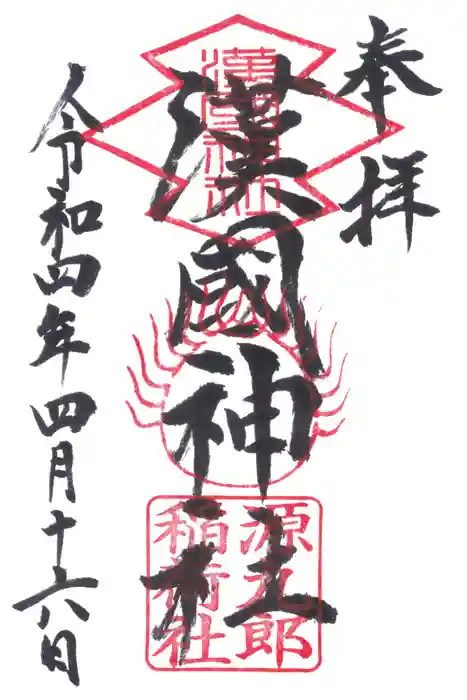 奉拝
漢國神社
令和四年四月十六日
漢國神社
源九郎
稲荷社